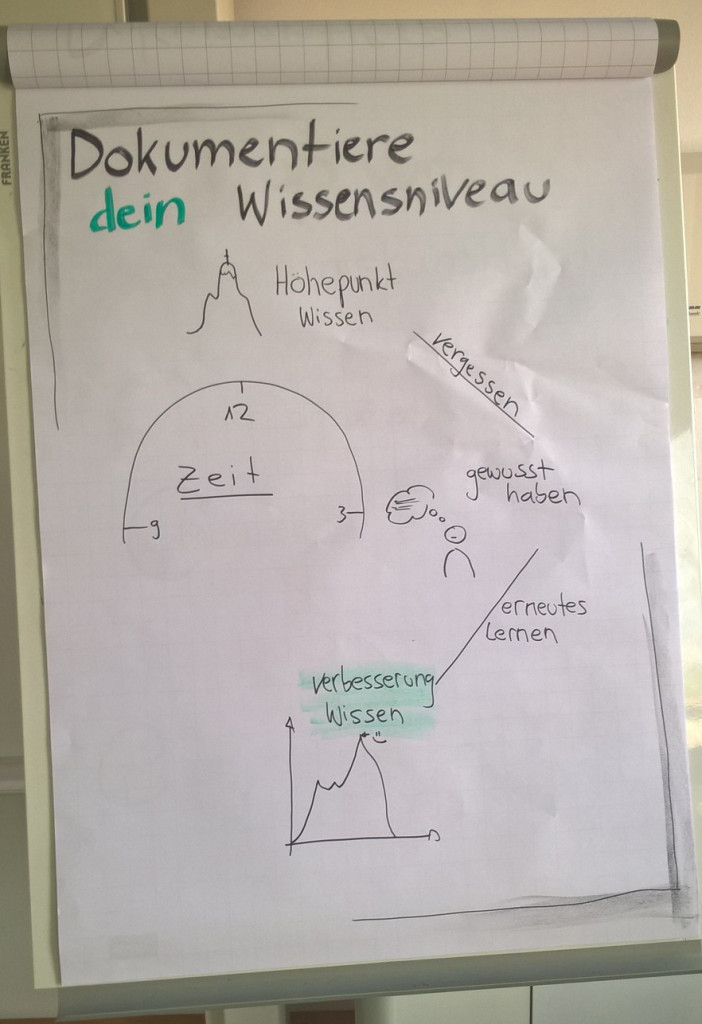 FRANKEN
Dokumentiere
dein Wissensniveau
Höhepunkt
Wissen
vergessen
12
Zeit
9
3
gewusst
haben
erneutes
Lernen
Verbesserung
Wissen